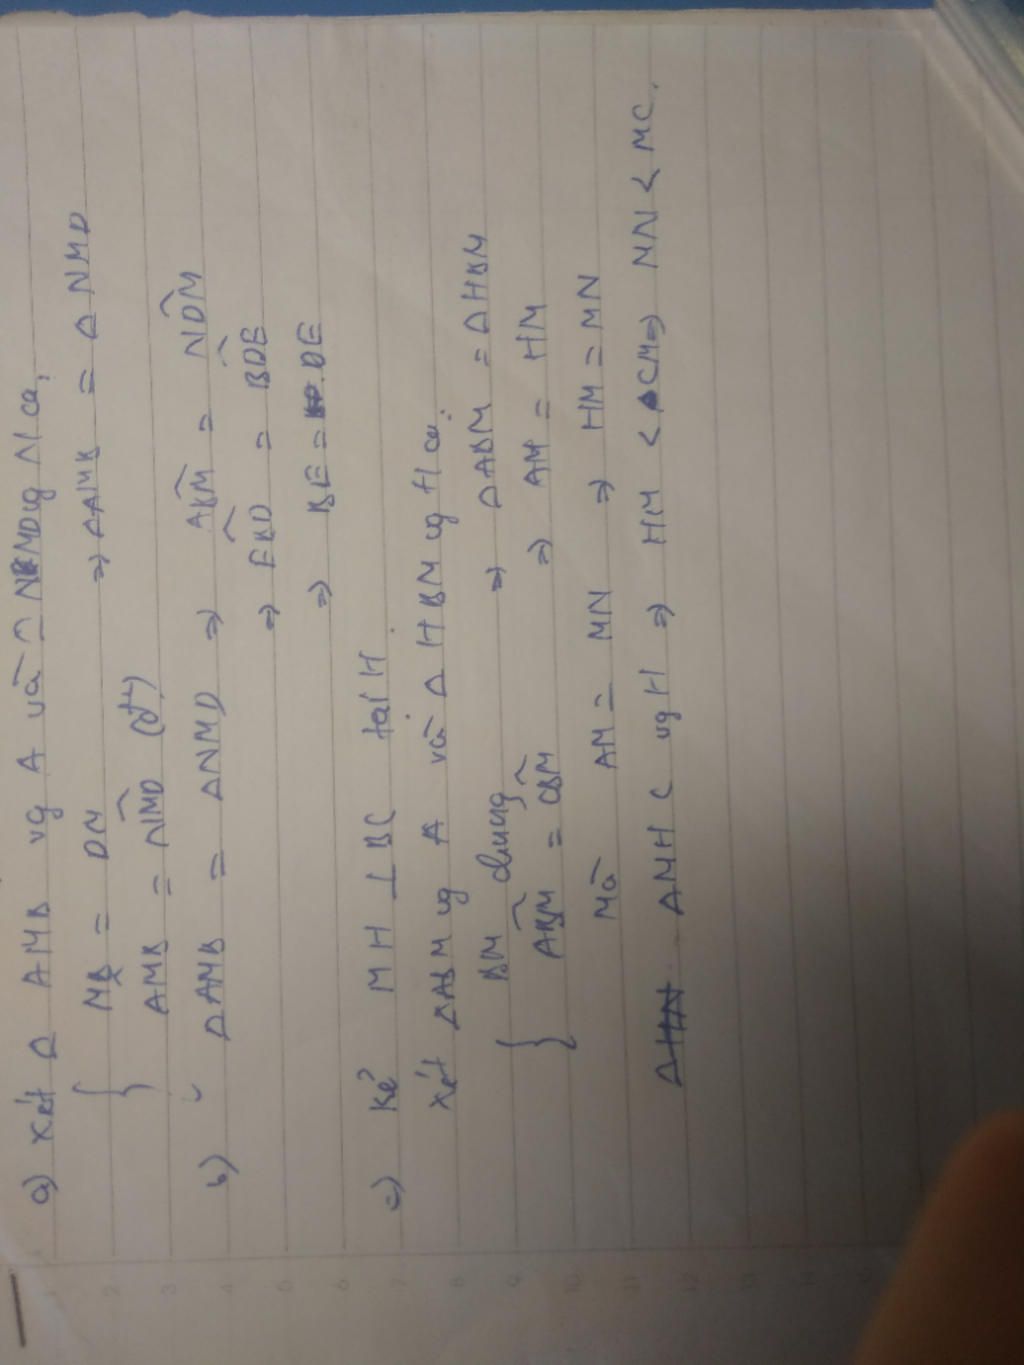 a) Xét Δ AMB vg A và Δ NMD vg N ca:
MB = DM
AMB = NMD (đđ)
⇒ ΔAMB = Δ NMD
b) Vì ΔAMB = ΔNMD ⇒ ABM = NDM
⇒ EBD = BDE
⇒ BE = DE
c) Kẻ MH ⊥ BC tại H.
Xét ΔABM vg A và Δ HBM vg H ca:
BM chung
ABM = CBM
⇒ ΔABM = ΔHBM
⇒ AM = HM
Mà AM = MN ⇒ HM = MN
ΔMHC vg H ⇒ HM < CM ⇒ MN < MC.
1
2
3
4
5
6
7
8
9
10
11
12
13
14
15